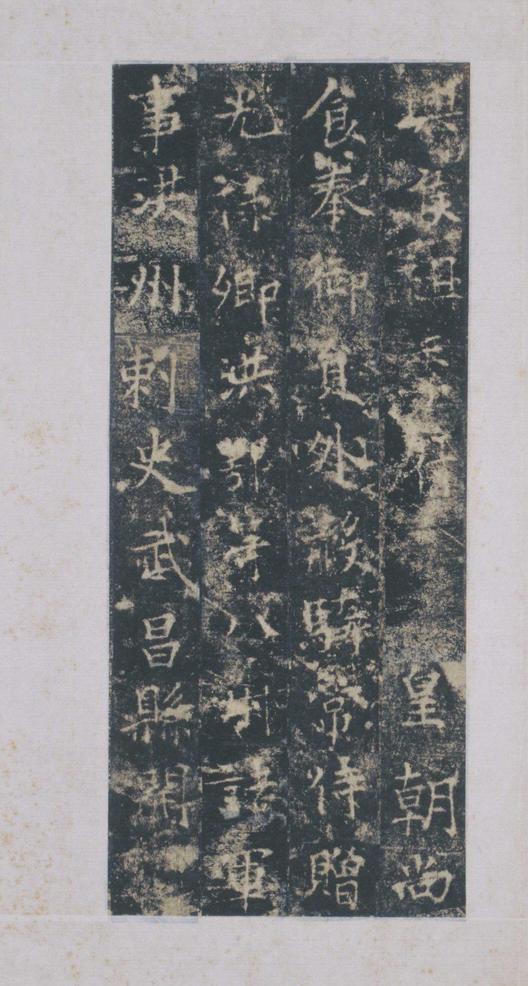 侯祖皇朝尚
食奉御員外散騎常侍贈
光祿卿洪鄂等八州諸軍
事洪州刺史武昌縣開